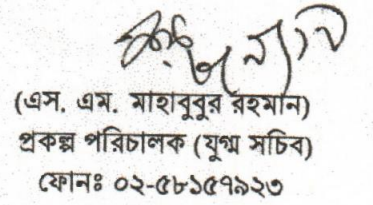 (এস. এম. মাহাবুবুর রহমান)
প্রকল্প পরিচালক (যুগ্ম সচিব)
ফোনঃ ০২-৫৮১৫৭৯২৩